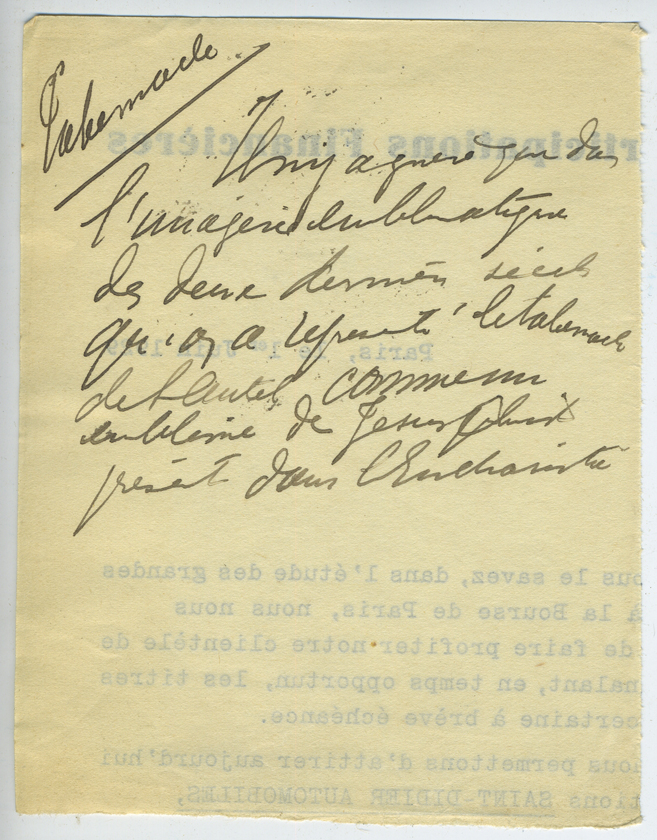 Tabernacle
Il n'y a guère que dans
l'imagerie emblématique
des deux derniers siècles
qu'on a représenté le tabernacle
de l'autel comme un
emblème de Jésus Christ
présent dans l'Eucharistie
rticipations Financières
Paris, le 1er Juin 19
ous le savez, dans l'étude des grandes
à la Bourse de Paris, nous nous
de faire profiter notre clientèle de
nalant, en temps opportun, les titres
certaine à brève échéance.
nous permettons d'attirer aujourd'hui
tions SAINT-DIDIER AUTOMOBILES,